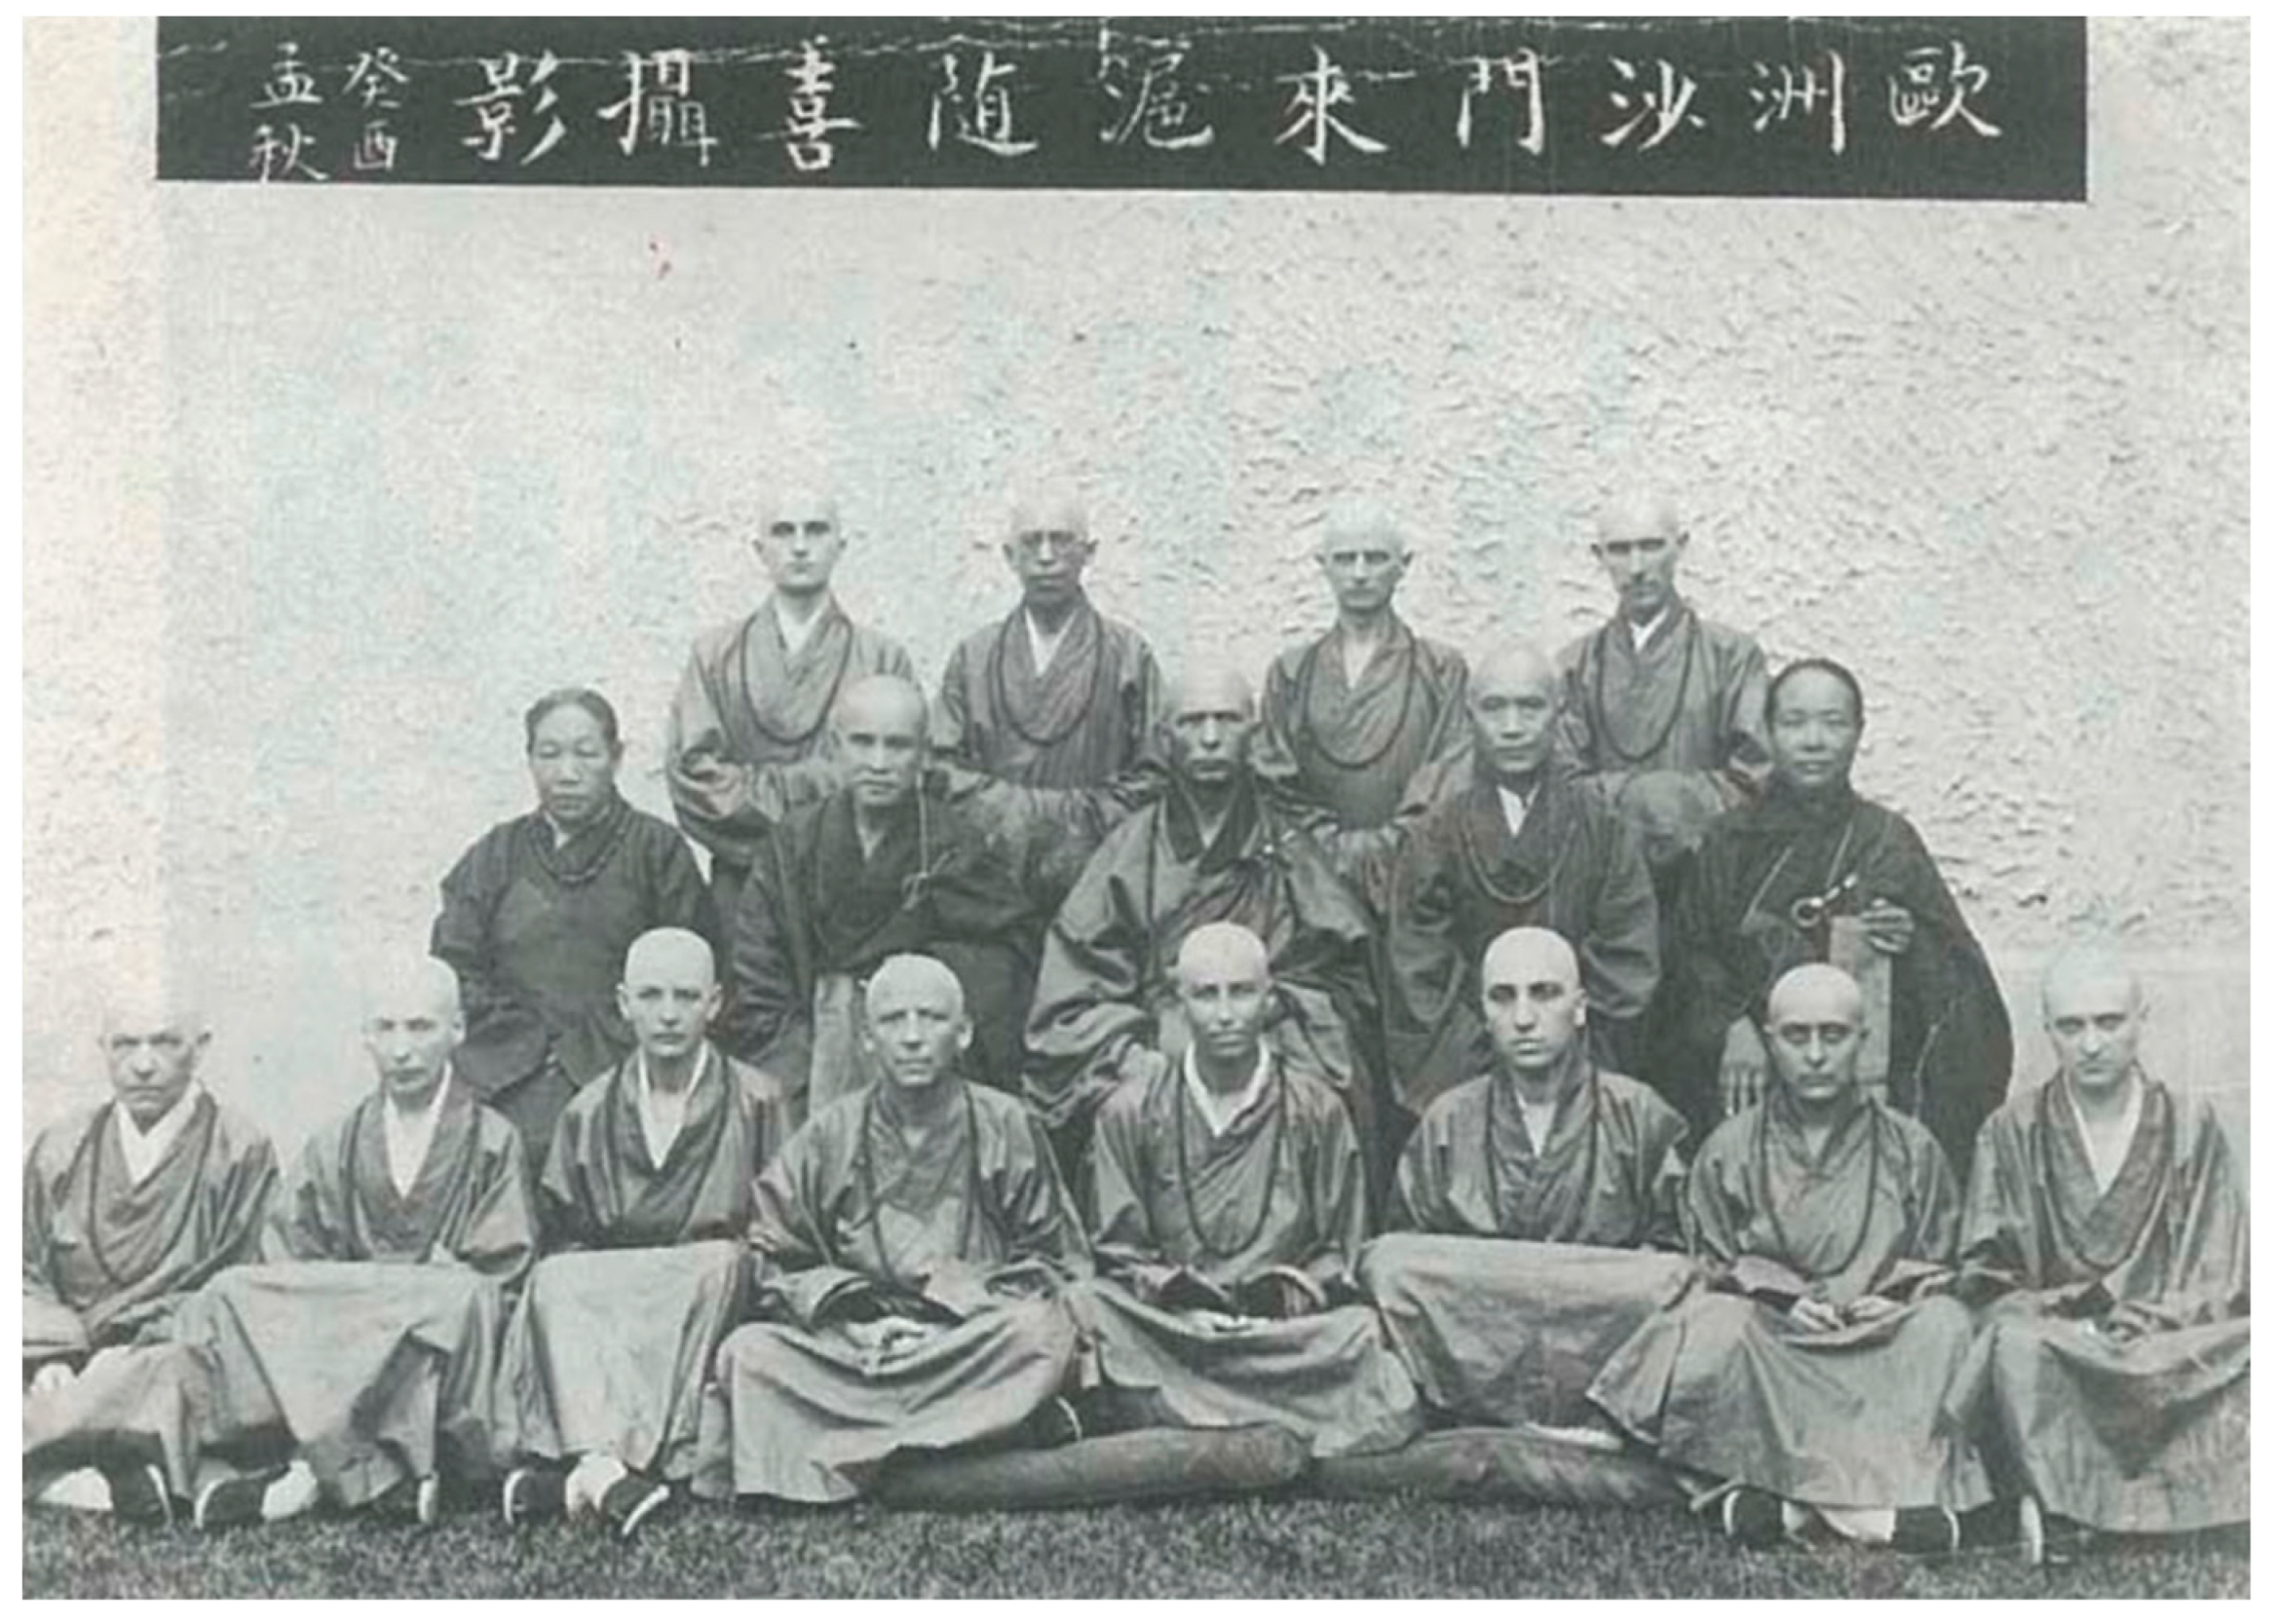 歐洲沙門來滬随喜攝影
癸酉
孟秋